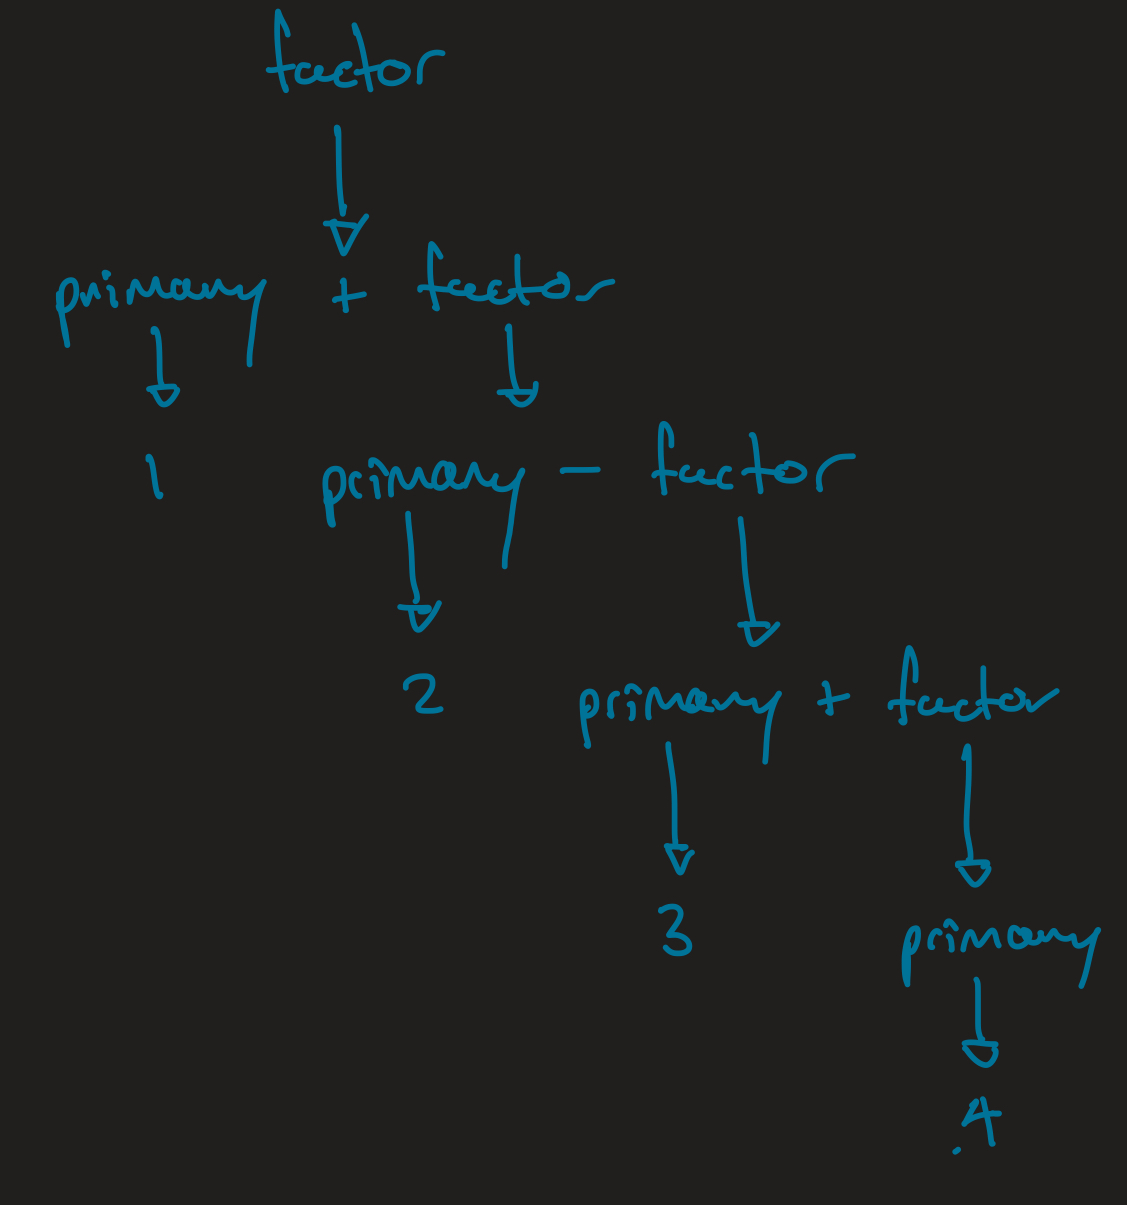 factor
primary + factor
1 primary - factor
2 primary + factor
3 primary
4